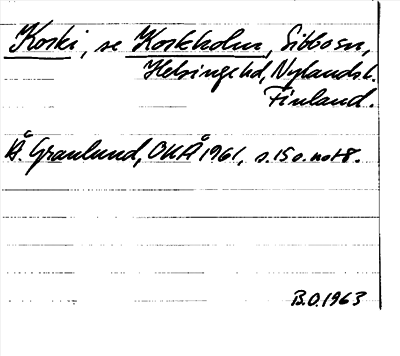 Koski, se Korkholm, Sibbo sn,
Helsinge hd, Nylands l.
Finland.
Å. Granlund, OKÅ 1961, s. 15 o. not 8.
B.O. 1963